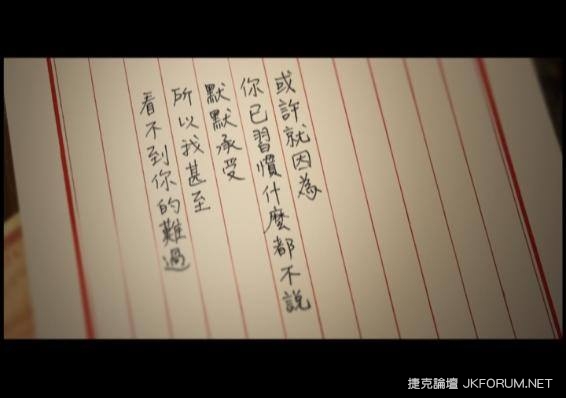 或許就因為
你已習慣什麼都不說
默默承受
所以我甚至
看不到你的難過
捷克論壇 JKFORUM.NET